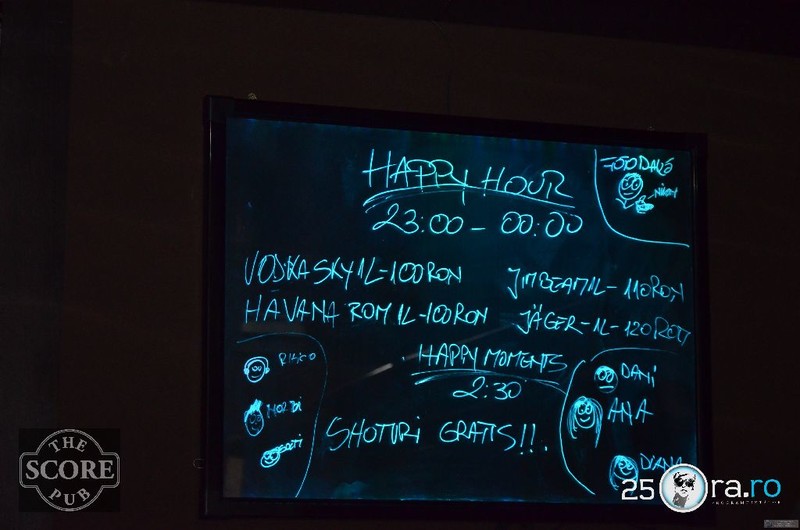 HAPPY HOUR
23:00 - 00:00
VODKA SKY 1L - 100 RON
HAVANA ROM 1L - 100 RON
JIM BEAM 1L - 110 RON
JÄGER - 1L - 120 RON
HAPPY MOMENTS
2:30
SHOTURI GRATIS!!!
FOTO
DANI
ANA
DIANA
THE
SCORE
PUB
25 ora.ro